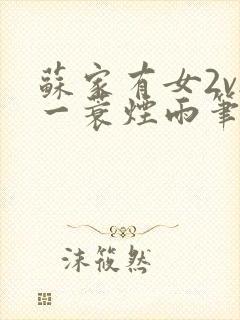 蘇家有女2v
一蓑煙雨筆
沫筱然